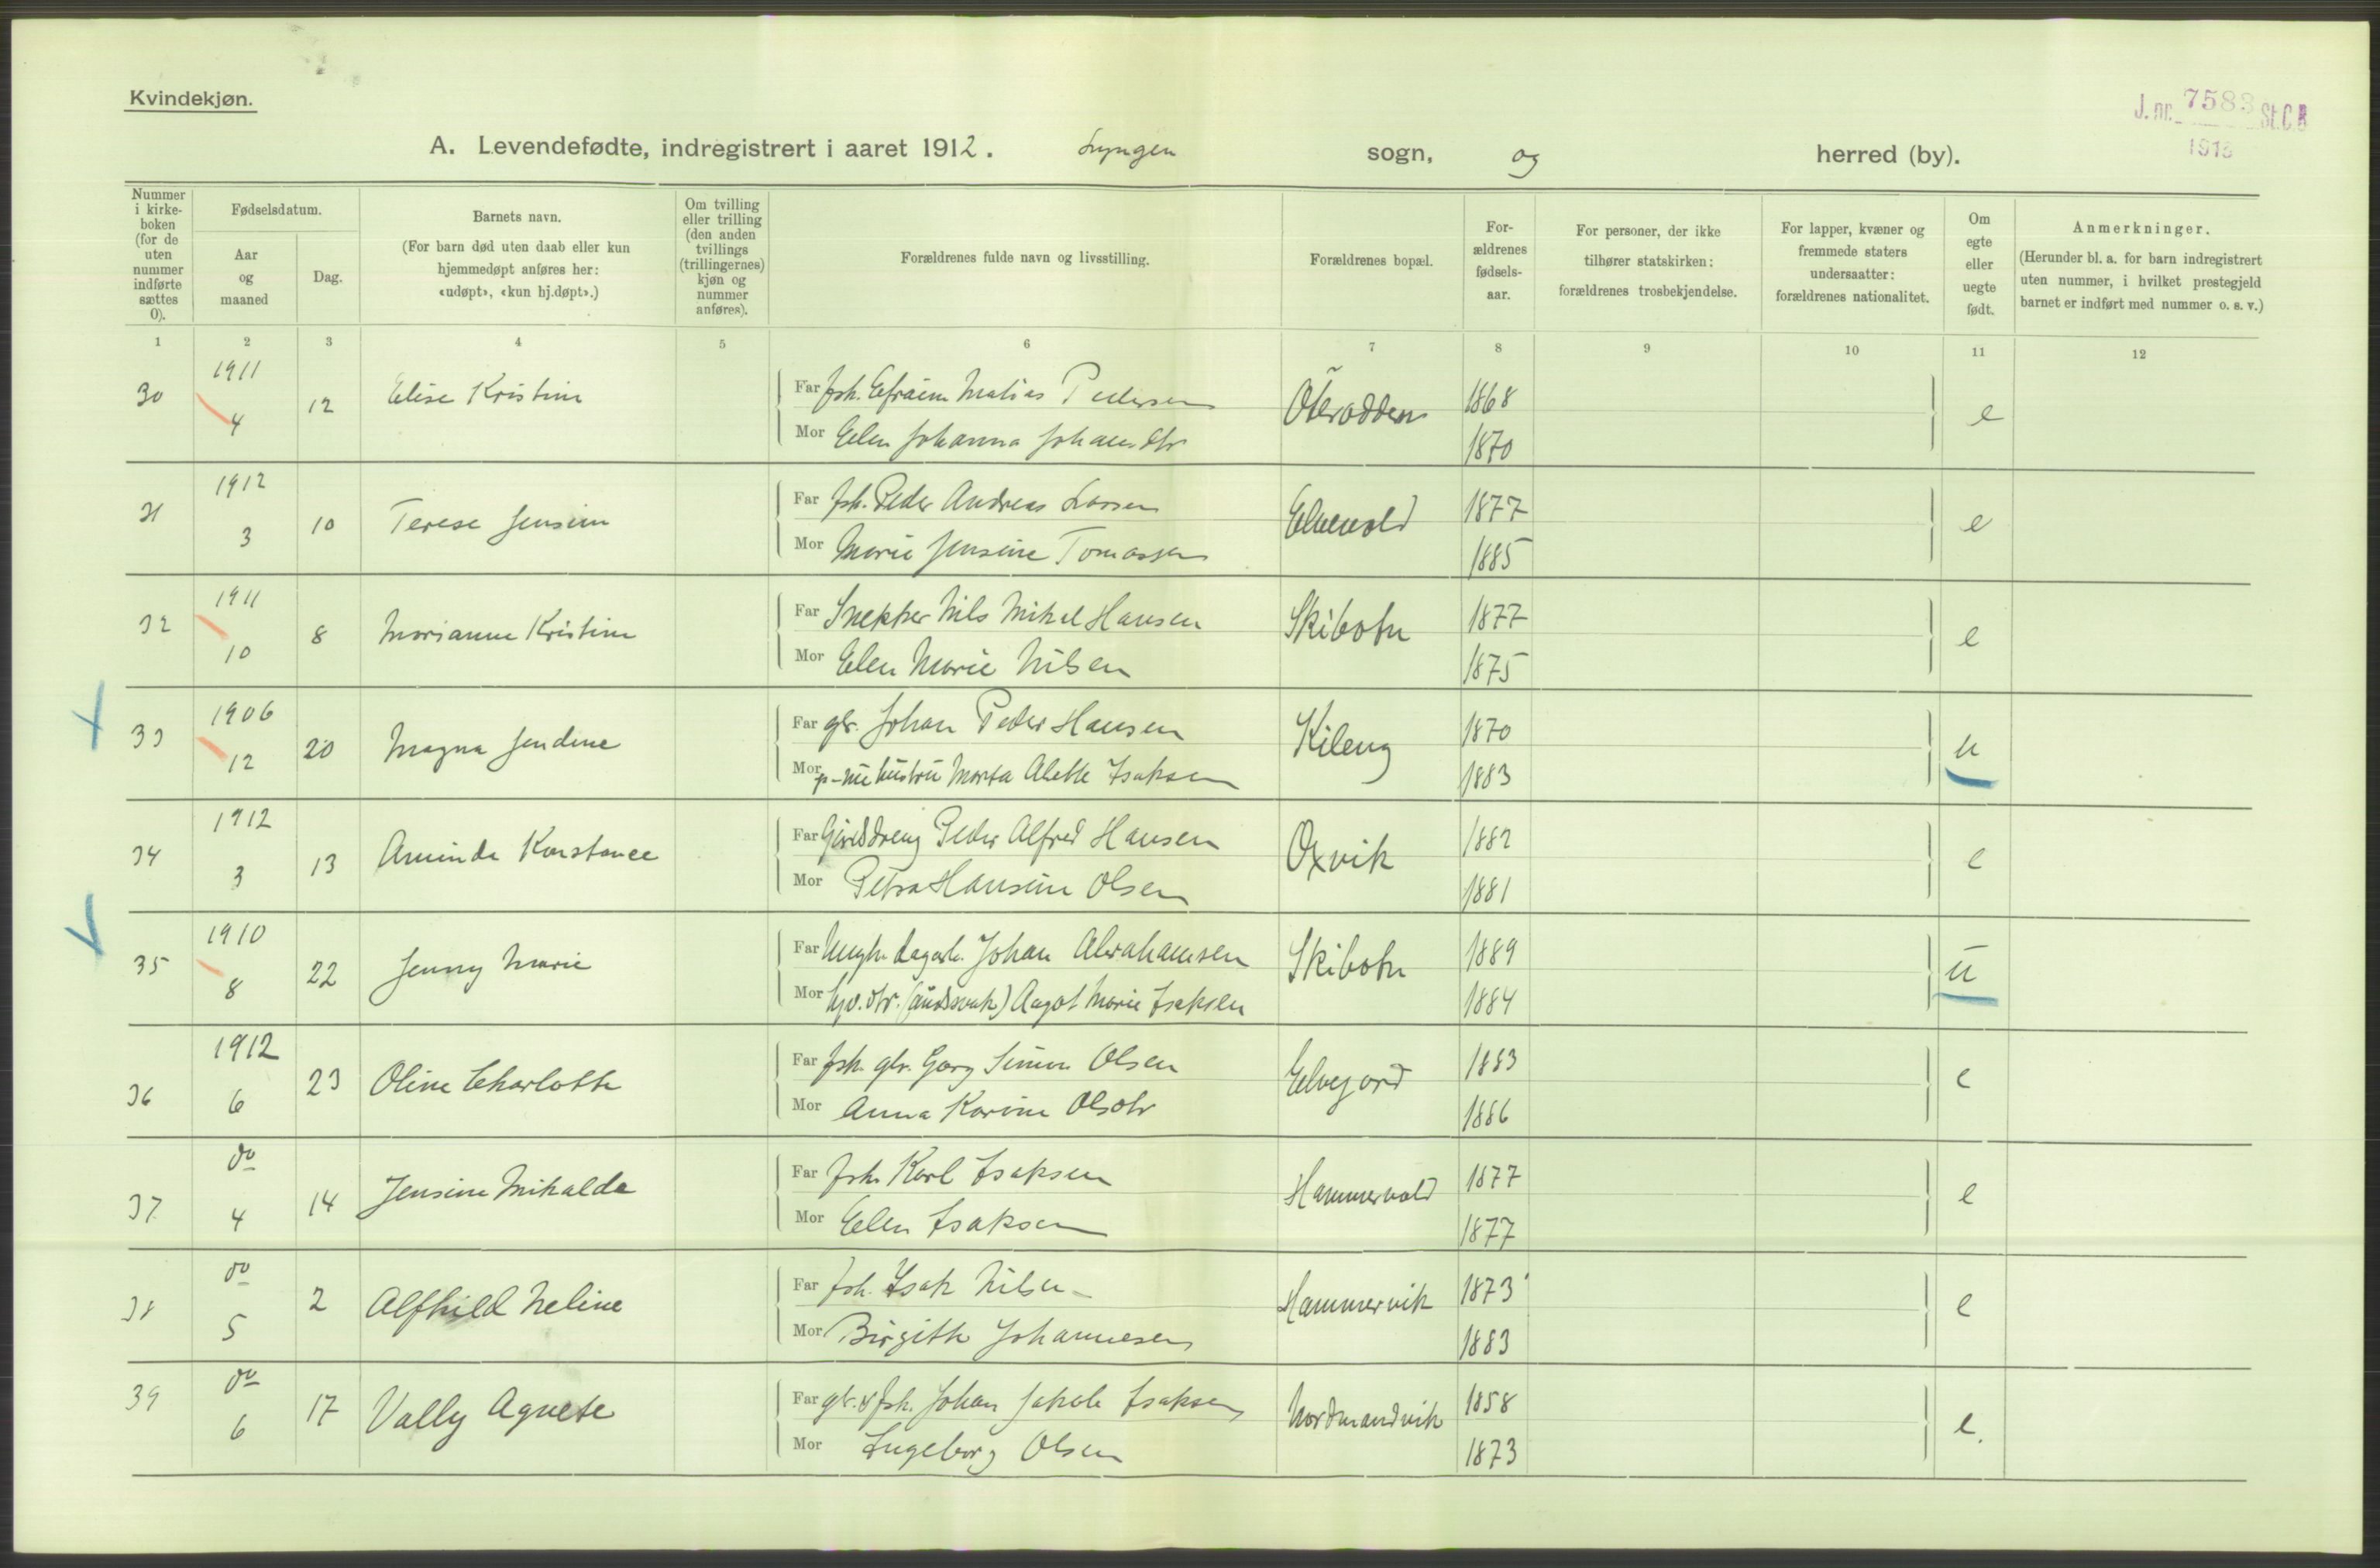 Kvindekjøn.
J. nr. 7583 St.C.B
1913
A. Levendefødte, indregistrert i aaret 1912. Lyngen sogn, og herred (by).
Nummer i kirke-boken (for de uten nummer indførte sættes 0).
Fødselsdatum.
Aar og maaned
Dag.
Barnets navn.
(For barn død uten daab eller kun hjemmedøpt anføres her: «udøpt», «kun hj.døpt».)
Om tvilling eller trilling (den anden tvillings (trillingernes) kjøn og nummer anføres).
Forældrenes fulde navn og livsstilling.
Forældrenes bopæl.
For-ældrenes fødsels-aar.
For personer, der ikke tilhører statskirken: forældrenes trosbekjendelse.
For lapper, kvæner og fremmede staters undersaatter: forældrenes nationalitet.
Om egte eller uegte født.
Anmerkninger.
(Herunder bl. a. for barn indregistrert uten nummer, i hvilket prestegjeld barnet er indført med nummer o. s. v.)
1 2 3 4 5 6 7 8 9 10 11 12
30 1911 4 12 Elise Kristine Far fsk. Efraim Matias Pedersen 1868 e
Mor Elen Johanna Johansdtr 1870
31 1912 3 10 Terese Jensine Far fsk. Peder Andreas Larsen Elvevold 1877 e
Mor Marie Jensine Tomassen 1885
32 1911 10 8 Marianne Kristine Far Snekker Nils Mikal Hansen Skibotn 1877 e
Mor Elen Marie Nilsen 1875
33 1906 12 20 Magna Jendine Far gbr. Johan Peder Hansen Kileng 1870 u
Mor nu hustru Marta Alette Isaksen 1883
34 1912 3 13 Aminda Konstance Far Gaardsdreng Peder Alfred Hansen Oxvik 1882 e
Mor Petra Hansine Olsen 1881
35 1910 8 22 Jenny Marie Far Ungk. dagarb. Johan Abrahamsen Skibotn 1889 u
Mor (aandssvak) Aagot Marie Isaksen 1884
36 1912 6 23 Oline Charlotte Far fsk. gbr. Georg Simon Olsen Elvejord 1883 e
Mor Anna Karine Olsdtr 1886
37 do 4 14 Jensine Mikalda Far fsk. Karl Isaksen Hammervold 1877 e
Mor Elen Isaksen 1877
38 do 5 2 Alfhild Neline Far fsk. Isak Nilsen Hammervik 1873 e
Mor Birgitte Johannesen 1883
39 do 6 17 Vally Agnete Far gbr. & fsk. Johan Jakob Isaksen Nordmandvik 1858 e.
Mor Ingeborg Olsen 1873